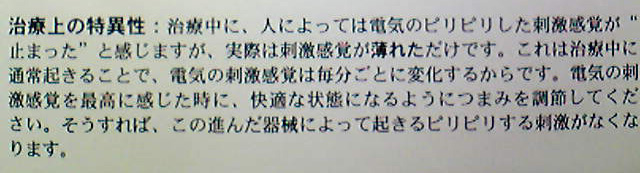 治療上の特異性：治療中に、人によっては電気のピリピリした刺激感覚が“
止まった”と感じますが、実際は刺激感覚が薄れただけです。これは治療中に
通常起きることで、電気の刺激感覚は毎分ごとに変化するからです。電気の刺
激感覚を最高に感じた時に、快適な状態になるようにつまみを調節してくだ
さい。そうすれば、この進んだ器械によって起きるピリピリする刺激がなくな
ります。